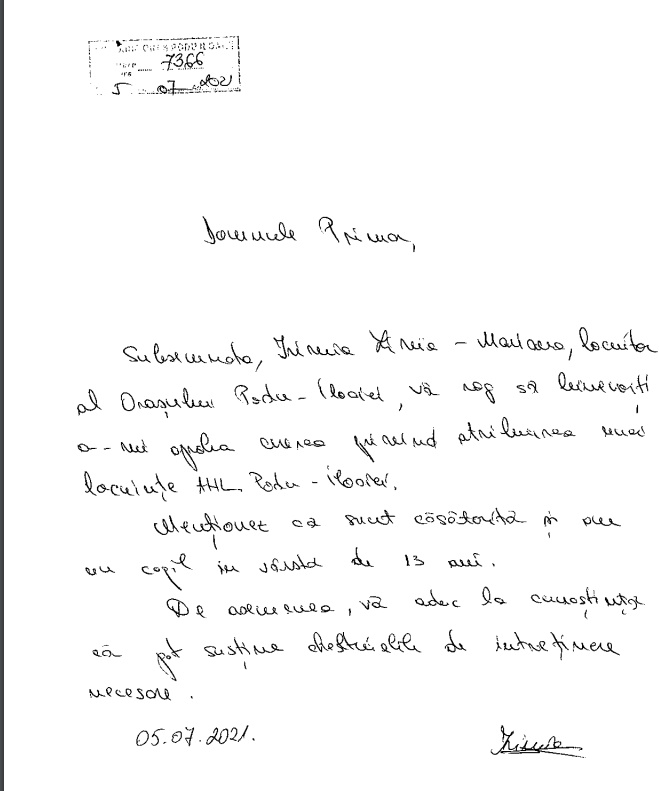 7366
5 07 2021
Domnule Primar,
Subsemnata, Irimia Ana - Mariana, locuitor
al Orașului Podu - Iloaiei, vă rog să binevoiți
a-mi aproba cererea privind atribuirea unei
locuințe ANL Podu - Iloaiei.
Menționez că sunt căsătorită și am
un copil în vârstă de 13 ani.
De asemenea, vă aduc la cunoștință
că pot susține cheltuielile de întreținere
necesare.
05.07.2021.